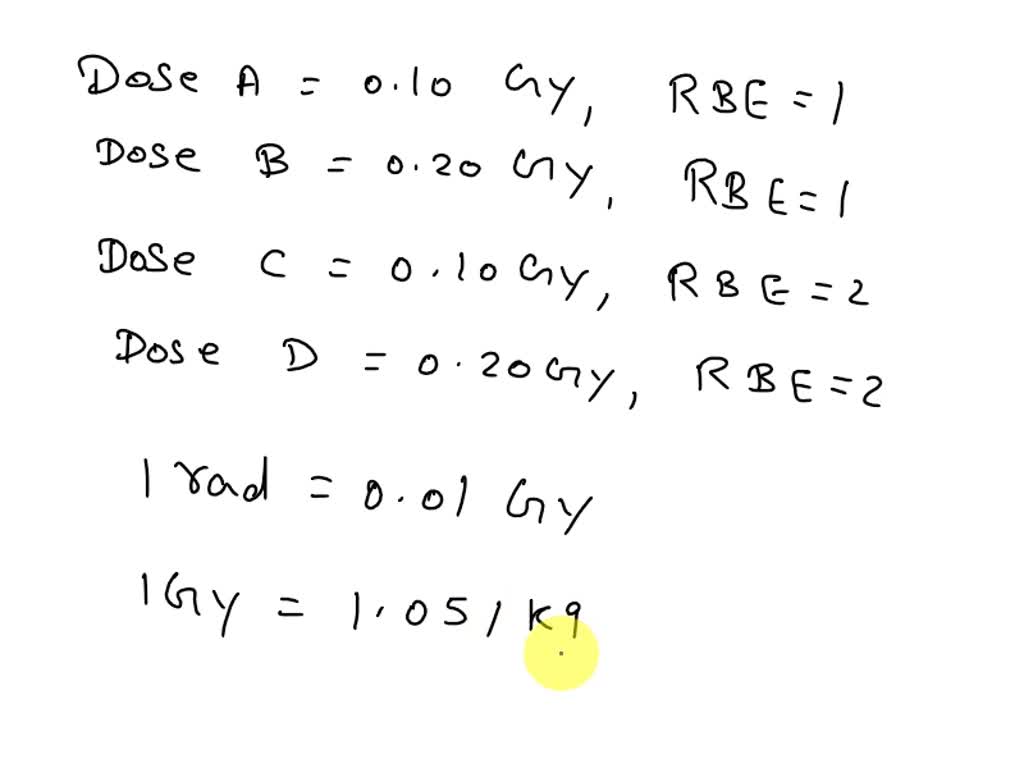 Dose A = 0.10 Gy, RBE = 1
Dose B = 0.20 Gy, RBE = 1
Dose C = 0.10 Gy, RBE = 2
Dose D = 0.20 Gy, RBE = 2
1 rad = 0.01 Gy
1 Gy = 1.05 / kg